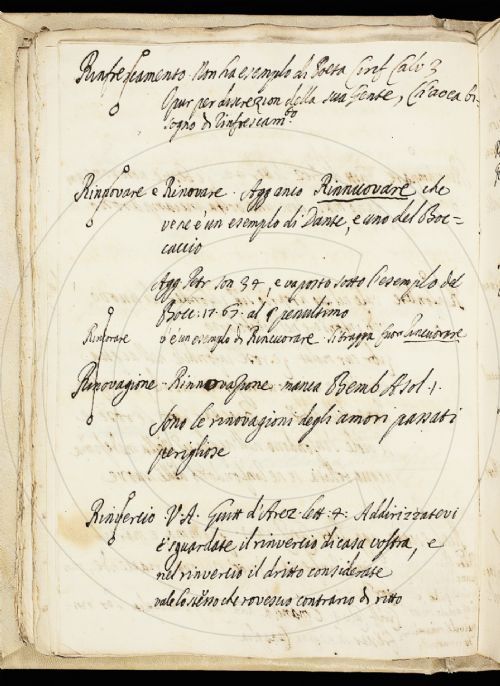 Rinfrescamento. Non ha esemplo di Poeta Ciriff Calv 3
Opur per discrezion della sua Gente, Ch'avea bi-
sogno di Rinfrescam.to
Rinnovare e Rinovare. Agg anco Rinnuovare che
ve ne è un esemplo di Dante, e uno del Boc=
caccio
Agg Petr son 34, e va posto sotto l'esemplo del
Bocc. 17. 61. al § penultimo
Rincorare v'è un esemplo di Rincuorare. Si trappa fuor Rincuorare
Rinovagione. Rinnovazione. manca Bemb Asol. 1.
Sono le rinovagioni degli amori passati
perigliose
Rinvercio. V. A. Guitt d'Arez. lett. 4. Addirizzatevi
e sguardate il rinvercio di casa vostra, e
nel rinvercio il dritto considerate
vale lo stesso che rovescio contrario di ritto